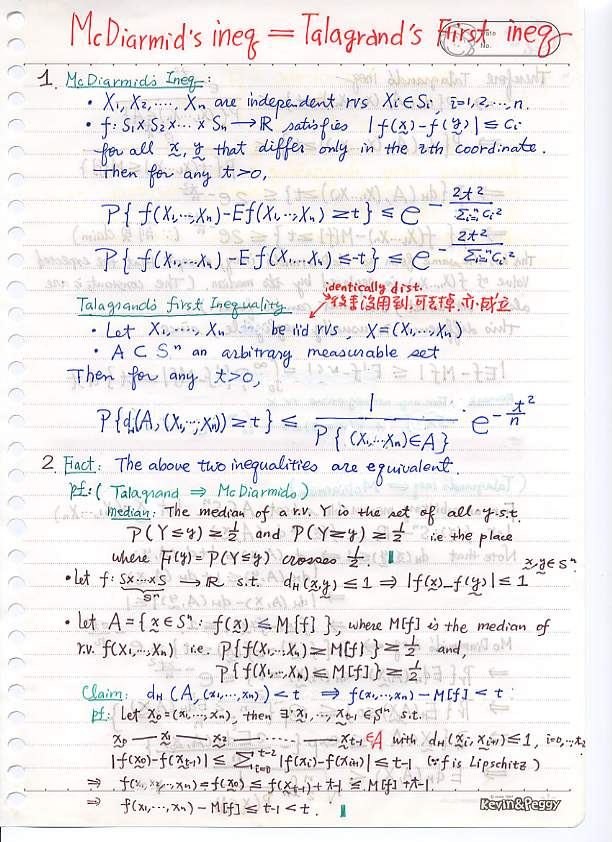 McDiarmid's ineq = Talagrand's First ineq
Date
No.
1. McDiarmid's Ineq:
• X₁, X₂, ..., Xₙ are independent rvs Xᵢ∈Sᵢ i=1,2,...,n.
• f: S₁×S₂×...×Sₙ → ℝ satisfies |f(x̰)-f(y̰)| ≤ cᵢ
for all x̰, y̰ that differ only in the ith coordinate.
Then for any t>0,
P{f(X₁,...,Xₙ)-Ef(X₁,...,Xₙ) ≥ t} ≤ e^{-2t²/Σᵢ₌₁ⁿcᵢ²}
P{f(X₁,...,Xₙ)-Ef(X₁,...,Xₙ) ≤ -t} ≤ e^{-2t²/Σᵢ₌₁ⁿcᵢ²}
identically dist.
Talagrand's first Inequality
• Let X₁,...,Xₙ be iid rvs, X=(X₁,...,Xₙ)
• A ⊂ Sⁿ an arbitrary measurable set
Then for any t>0,
P{d_H(A,(X₁,...,Xₙ)) ≥ t} ≤ 1/P{(X₁,...,Xₙ)∈A} · e^{-t²/n}
2. Fact: The above two inequalities are equivalent.
pf: (Talagrand ⇒ McDiarmids)
median: The median of a r.v. Y is the set of all y s.t.
P(Y≤y) ≥ 1/2 and P(Y≥y) ≥ 1/2 i.e the place
where F(y) = P(Y≤y) crosses 1/2
• Let f: S×...×S → ℝ s.t. d_H(x̰,y̰) ≤ 1 ⇒ |f(x̰)-f(y̰)| ≤ 1 x̰,y̰∈Sⁿ
Sⁿ
• Let A = {x̰∈Sⁿ : f(x̰) ≤ M[f]}, where M[f] is the median of
r.v. f(X₁,...,Xₙ) i.e. P{f(X₁,...,Xₙ) ≥ M[f]} ≥ 1/2 and,
P{f(X₁,...,Xₙ) ≤ M[f]} ≥ 1/2
Claim: d_H(A,(x₁,...,xₙ)) < t ⇒ f(x₁,...,xₙ)-M[f] < t
pf: Let x̰₀=(x₁,...,xₙ), then ∃ x̰₁,...,x̰ₜ₋₁∈Sⁿ s.t.
x̰₀ — x̰₁ — x̰₂ — ...... — x̰ₜ₋₁∈A with d_H(x̰ᵢ,x̰ᵢ₊₁)≤1, i=0,...,t-2
|f(x₀)-f(xₜ₋₁)| ≤ Σᵢ₌₀ᵗ⁻² |f(xᵢ)-f(xᵢ₊₁)| ≤ t-1 (∵ f is Lipschitz)
⇒ f(x₁,x₂,...,xₙ)=f(x₀) ≤ f(xₜ₋₁)+t-1 ≤ M[f]+t-1.
⇒ f(x₁,...,xₙ)-M[f] ≤ t-1 < t.
Kevin&Peggy